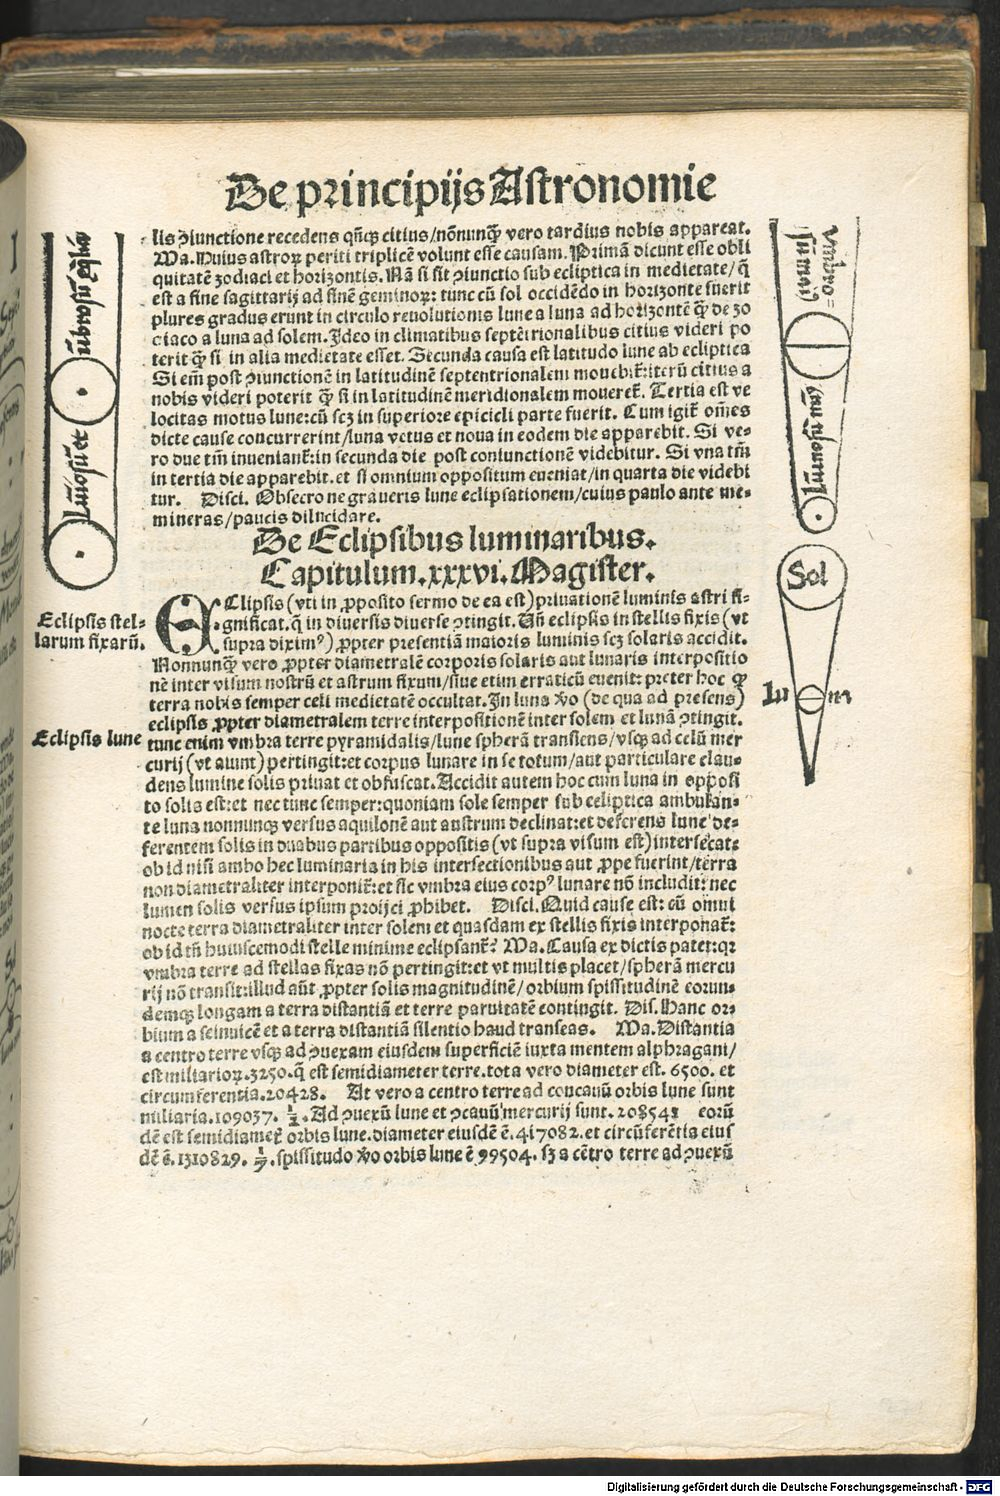 De principijs Astronomie
lis ɔiunctione recedens qñcꝫ citius/nõnunq̃ꝫ vero tardius nobis appareat.
Ma. Huius astroꝝ periti triplicẽ volunt esse causam. Primã dicunt esse obli
quitatẽ zodiaci et horizontis. Nã si sit ɔiunctio sub ecliptica in medietate/q̃
est a fine sagittarij ad finẽ geminoꝝ: tunc cũ sol occidẽdo in horizonte fuerit
plures gradus erunt in circulo reuolutionis lune a luna ad horizontẽ q̃ꝫ de zo
ciaco a luna ad solem. Ideo in climatibus septẽtrionalibus citius videri po
terit q̃ꝫ si in alia medietate esset. Secunda causa est latitudo lune ab ecliptica
Si em̃ post ɔiunctionẽ in latitudinẽ septentrionalem mouebit᷑: iterũ citius a
nobis videri poterit q̃ꝫ si in latitudinẽ meridionalem moueret᷑. Tertia est ve
locitas motus lune: cũ scꝫ in superiore epicicli parte fuerit. Cum igit᷑ om̃es
dicte cause concurrerint/luna vetus et noua in eodem die apparebit. Si ve-
ro due tm̃ inueniant᷑: in secunda die post coniunctionẽ videbitur. Si vna tm̃
in tertia die apparebit. et si omnium oppositum eueniat/in quarta die videbi
tur. Disci. Obsecro ne graueris lune eclipsationem/cuius paulo ante me-
mineras/paucis dilucidare.
De Eclipsibus luminaribus.
Capitulum.xxxvi. Magister.
EClipsis (vti in ꝓposito sermo de ea est) priuationẽ luminis astri si-
gnificat. q̃ in diuersis diuerse ɔtingit. Vñ eclipsis in stellis fixis (vt
supra diximꝰ) ꝓpter presentiã maioris luminis scꝫ solaris accidit.
Nonnunq̃ꝫ vero ꝓpter diametralẽ corporis solaris aut lunaris interpositio
nẽ inter visum nostrũ et astrum fixum/siue etim erraticũ euenit: preter hoc qꝫ
terra nobis semper celi medietatẽ occultat. In luna ꝟo (de qua ad presens)
eclipsis ꝓpter diametralem terre interpositionẽ inter solem et lunã ɔtingit.
tunc enim vmbra terre pyramidalis/lune spherã transiens/vsqꝫ ad celũ mer
curij (vt aiunt) pertingit: et corpus lunare in se totum/aut particulare clau-
dens lumine solis priuat et obfuscat. Accidit autem hoc cum luna in opposi
to solis est: et nec tunc semper: quoniam sole semper sub ecliptica ambulan-
te luna nonnunqꝫ versus aquilonẽ aut austrum declinat: et deferens lune de-
ferentem solis in duabus partibus oppositis (vt supra visum est) intersecat-
ob id nisi ambo hec luminaria in his intersectionibus aut ꝓpe fuerint/terra
non diametraliter interponit᷑: et sic vmbra eius corpꝰ lunare nõ includit: nec
lumen solis versus ipsum proijci ꝓhibet. Disci. Quid cause est: cũ omni
nocte terra diametraliter inter solem et quasdam ex stellis fixis interponat᷑:
ob id tñ huiuscemodi stelle minime eclipsant᷑? Ma. Causa ex dictis patet: qꝛ
vmbra terre ad stellas fixas nõ pertingit: et vt multis placet/spherã mercu
rij nõ transit: illud aũt ꝓpter solis magnitudinẽ/orbium spissitudinẽ eorun-
demqꝫ longam a terra distantiã et terre paruitatẽ contingit. Dis. Hanc or-
bium a seinuicẽ et a terra distantiã silentio haud transeas. Ma. Distantia
a centro terre vsqꝫ ad ɔuexam eiusdem superficiẽ iuxta mentem alphragani/
est miliarioꝝ.3250. q̃ est semidiameter terre. tota vero diameter est.6500. et
circumferentia.20428. At vero a centro terre ad concauũ orbis lune sunt
miliaria.109037. ½. Ad ɔuexũ lune et ɔcauũ mercurij sunt.208541 eorũ
dẽ est semidiamet᷑ orbis lune. diameter eiusdẽ ẽ.417082. et circũferẽtia eius
dẽ ẽ.1310829. ⅐. spissitudo ꝟo orbis lune ẽ 99504. sꝫ a cẽtro terre ad ɔuexũ
Eclipsis stel-
larum fixarũ.
Eclipsis lune
Sol
Lu na
Digitalisierung gefördert durch die Deutsche Forschungsgemeinschaft - DFG